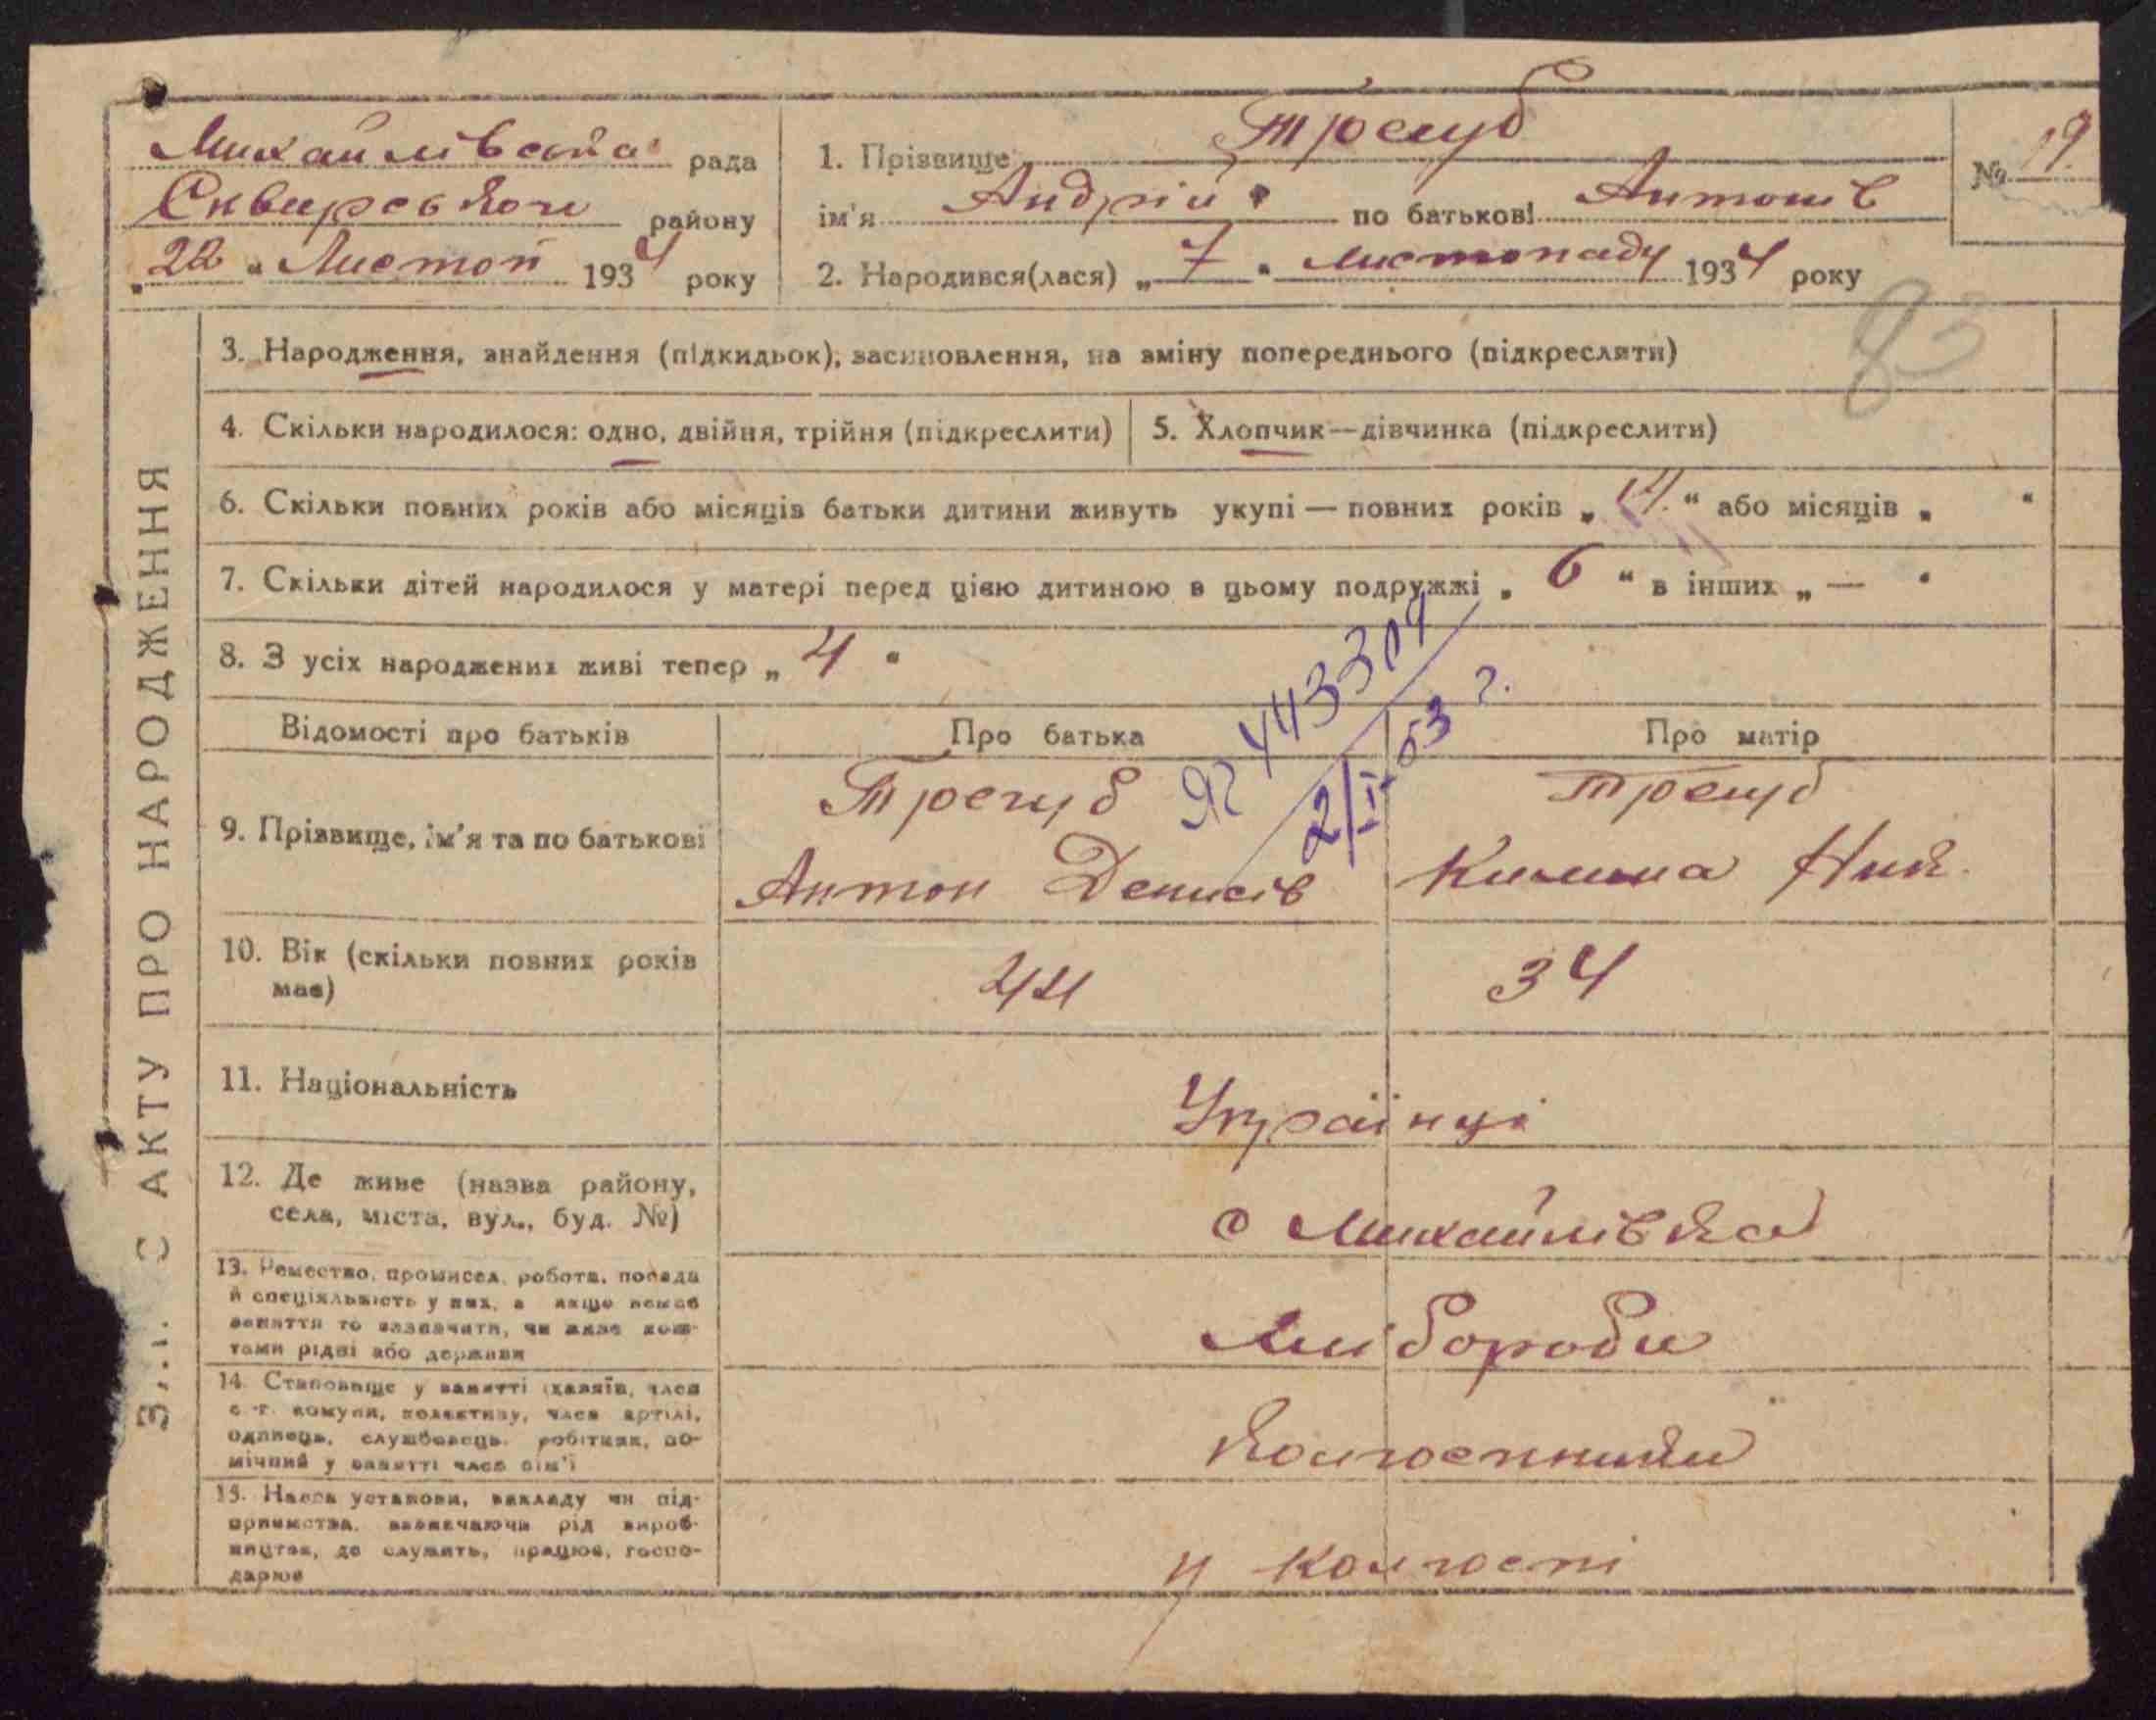 Михайлівська рада
Сквирського району
„22“ Листоп 1934 року
1. Прізвище Трегуб
ім'я Андрій по батькові Антонів
№ 19
2. Народився(лася) „7“ листопаду 1934 року
83
З АКТУ ПРО НАРОДЖЕННЯ
3. Народження, знайдення (підкидьок), засиновлення, на зміну попереднього (підкреслити)
4. Скільки народилося: одно, двійня, трійня (підкреслити)
5. Хлопчик—дівчинка (підкреслити)
6. Скільки повних років або місяців батьки дитини живуть укупі — повних років „14“ або місяців „ “
7. Скільки дітей народилося у матері перед цією дитиною в цьому подружжі „6“ в інших „—“
8. З усіх народжених живі тепер „4“
Відомості про батьків
Про батька
Про матір
443304
2/II-53 г.
9. Прізвище, ім'я та по батькові
Трегуб
Антон Денисів
Трегуб
Килина
10. Вік (скільки повних років
має)
44
34
11. Національність
Українці
12. Де живе (назва району,
села, міста, вул., буд. №)
с Михайлівка
13. Ремество, промисел, робота, посада
й спеціяльність у них, а якщо немає
заняття то зазначити, чи живе кош-
тами рідні або держави
Хлібороби
14. Становище у занятті (хазяїн, член
с.-г. комуни, колективу, член артілі,
одинець, службовець, робітник, по-
мічний у занятті член сім'ї
Колгоспники
15. Назва установи, закладу чи під-
приємства, зазначаючи рід вироб-
ництва, де служить, працює, госпо-
дарює
у колгоспі